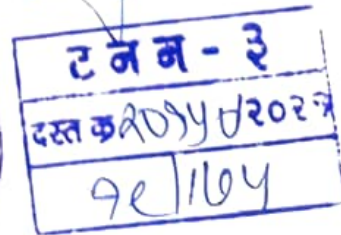 ट न न - ३
दस्त क्र २०१५४/२०२३
१८/१७५